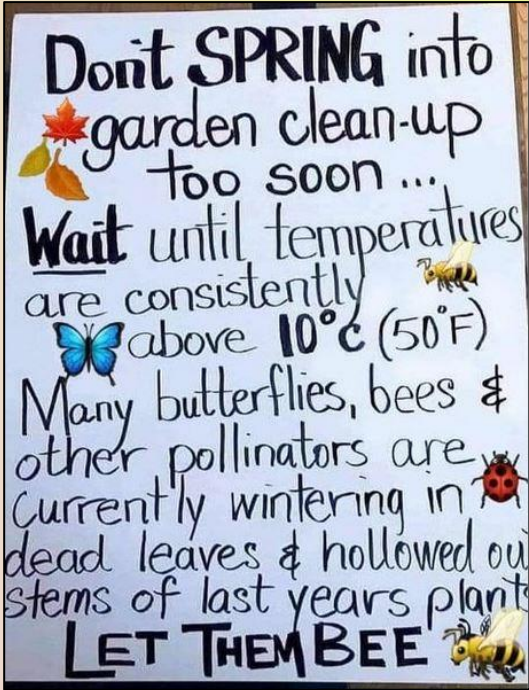 Don't SPRING into
garden clean-up
too soon ...
Wait until temperatures
are consistently
above 10°C (50°F)
Many butterflies, bees &
other pollinators are
currently wintering in
dead leaves & hollowed ou
stems of last years plant
LET THEM BEE